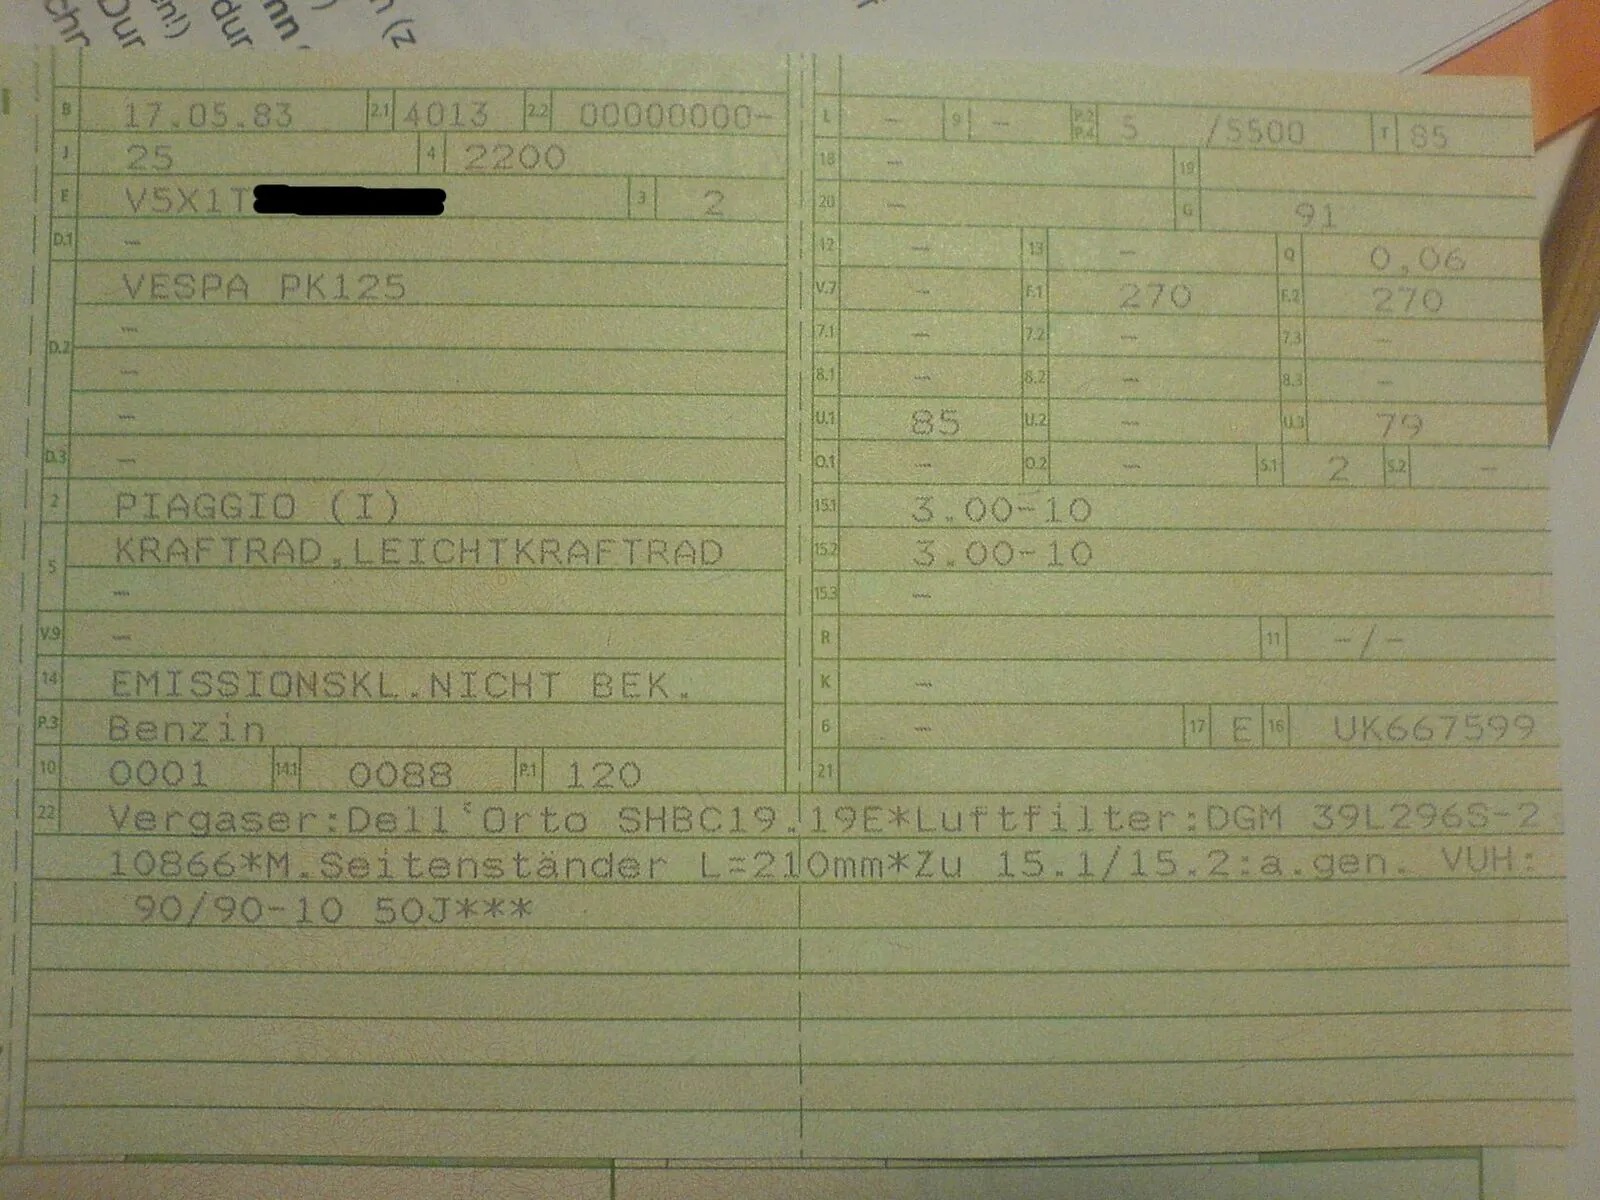 chr
Dur
en!)
dur
nn
n (z
B 17.05.83 2.1 4013 2.2 00000000-
J 25 4 2200
E V5X1T 3 2
D.1 –
VESPA PK125
–
D.2
–
–
D.3 –
2 PIAGGIO (I)
KRAFTRAD,LEICHTKRAFTRAD
5
–
V.9 –
14 EMISSIONSKL.NICHT BEK.
P.3 Benzin
10 0001 14.1 0088 P.1 120
L – 9 – P.2 P.4 5 /5500 T 85
18 – 19
20 – G 91
12 – 13 – Q 0,06
V.7 – F.1 270 F.2 270
7.1 – 7.2 – 7.3 –
8.1 – 8.2 – 8.3 –
U.1 85 U.2 – U.3 79
O.1 – O.2 – S.1 2 S.2 –
15.1 3.00-10
15.2 3.00-10
15.3 –
R 11 -/-
K –
6 – 17 E 16 UK667599
21
22 Vergaser:Dell'Orto SHBC19.19E*Luftfilter:DGM 39L296S-2
10866*M.Seitenständer L=210mm*Zu 15.1/15.2:a.gen. VUH:
90/90-10 50J***